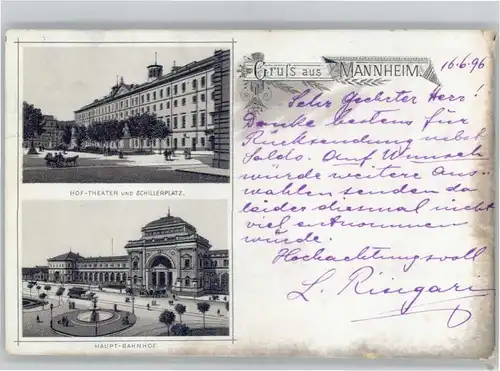 Gruss aus MANNHEIM.
16.6.96
Sehr Geehrter Herr!
Danke bestens für
Rücksendung nebst
Saldo. Auf Wunsch
würde weitere Aus-
wahlen senden da
leider diesmal nicht
viel entnommen
würde.
Hochachtungsvoll
L.
HOF-THEATER UND SCHILLERPLATZ.
HAUPT-BAHNHOF.